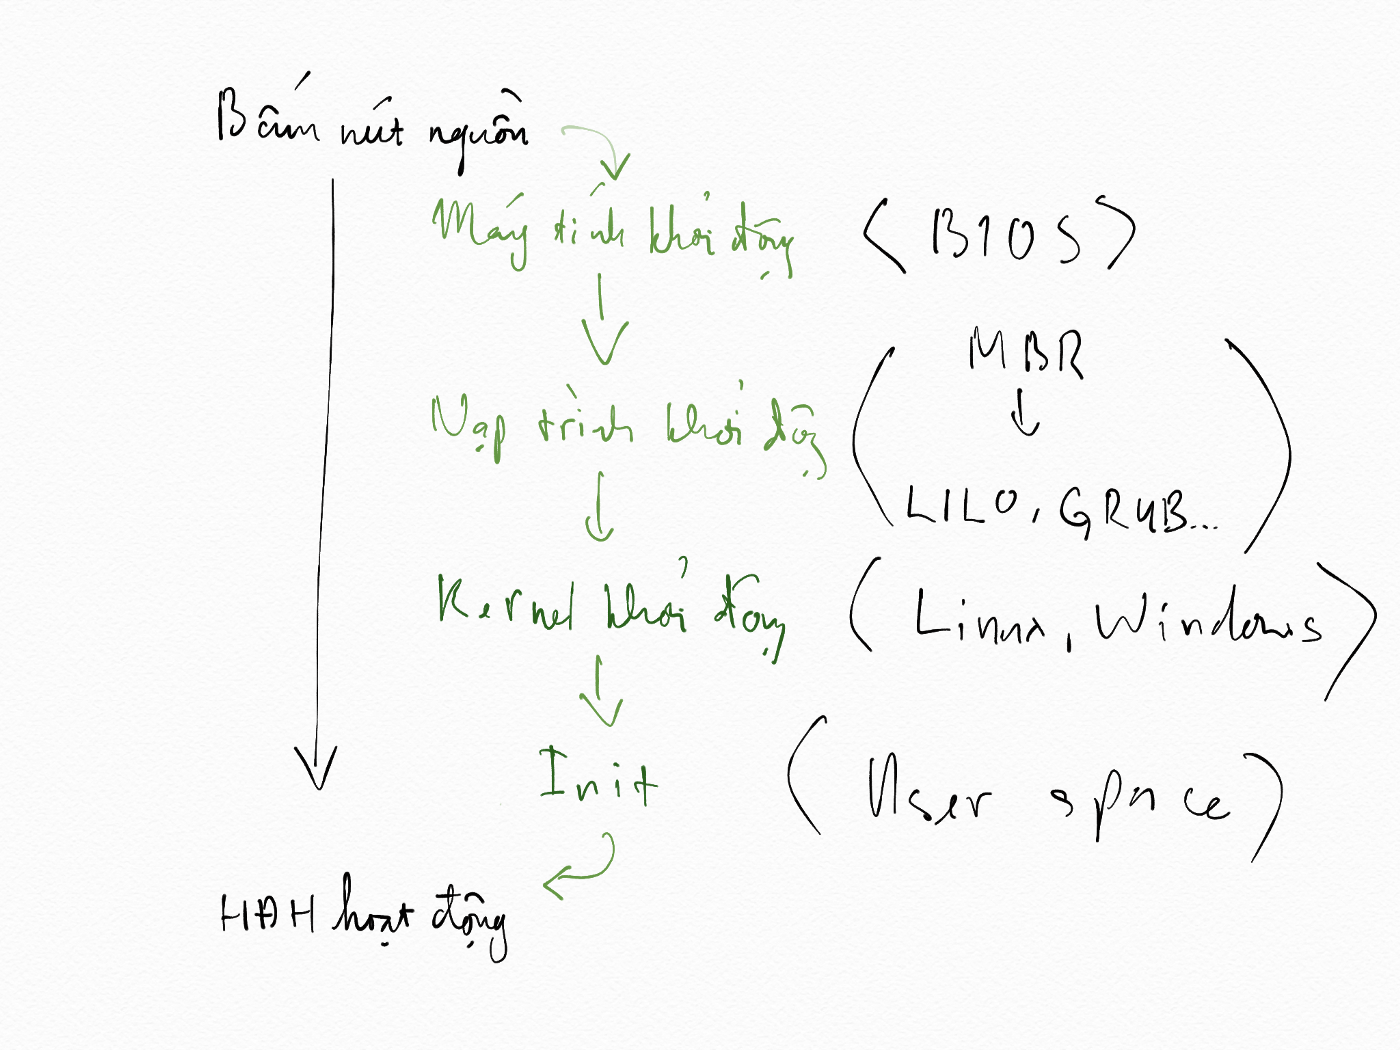 Bấm nút nguồn
Máy tính khởi động (BIOS)
MBR
Nạp trình khởi động
LILO, GRUB...
Kernel khởi động (Linux, Windows)
Init (User space)
HĐH hoạt động